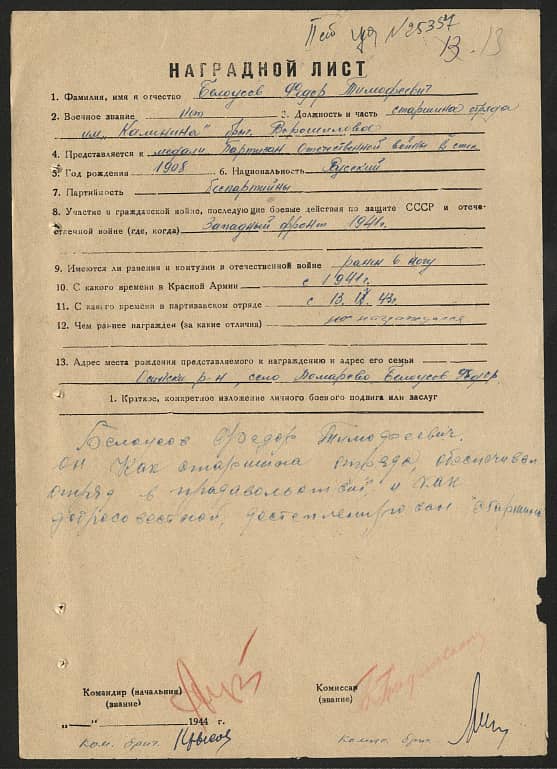 №25357
13 13
НАГРАДНОЙ ЛИСТ
1. Фамилия, имя и отчество Белоусов Федор Тимофеевич
2. Военное звание нет 3. Должность и часть старшина отряда
им. "Калинина" бриг. Ворошилова
4. Представляется к медали Партизан Отечественной войны II степ
5. Год рождения 1908 6. Национальность Русский
7. Партийность Беспартийный
8. Участие в гражданской войне, последующие боевые действия по защите СССР и отече-
ственной войне (где, когда) Западный фронт 1941г.
9. Имеются ли ранения и контузии в отечественной войне ранен в ногу
10. С какого времени в Красной Армии с 1941г.
11. С какого времени в партизанском отряде с 13. 43г.
12. Чем раньее награжден (за какие отличия) не награждался
13. Адрес места рождения представляемого к награждению и адрес его семьи
р-н, село Белоусов Федор.
1. Краткое, конкретное изложение личного боевого подвига или заслуг
Белоусов Федор Тимофеевич.
он как старшина отряда, обеспечивал
отряд в и как
добросовестной, старшина
Командир (начальник)
(звание)
Комиссар
(звание)
"—" 1944 г.
Ком. бриг.
бриг.